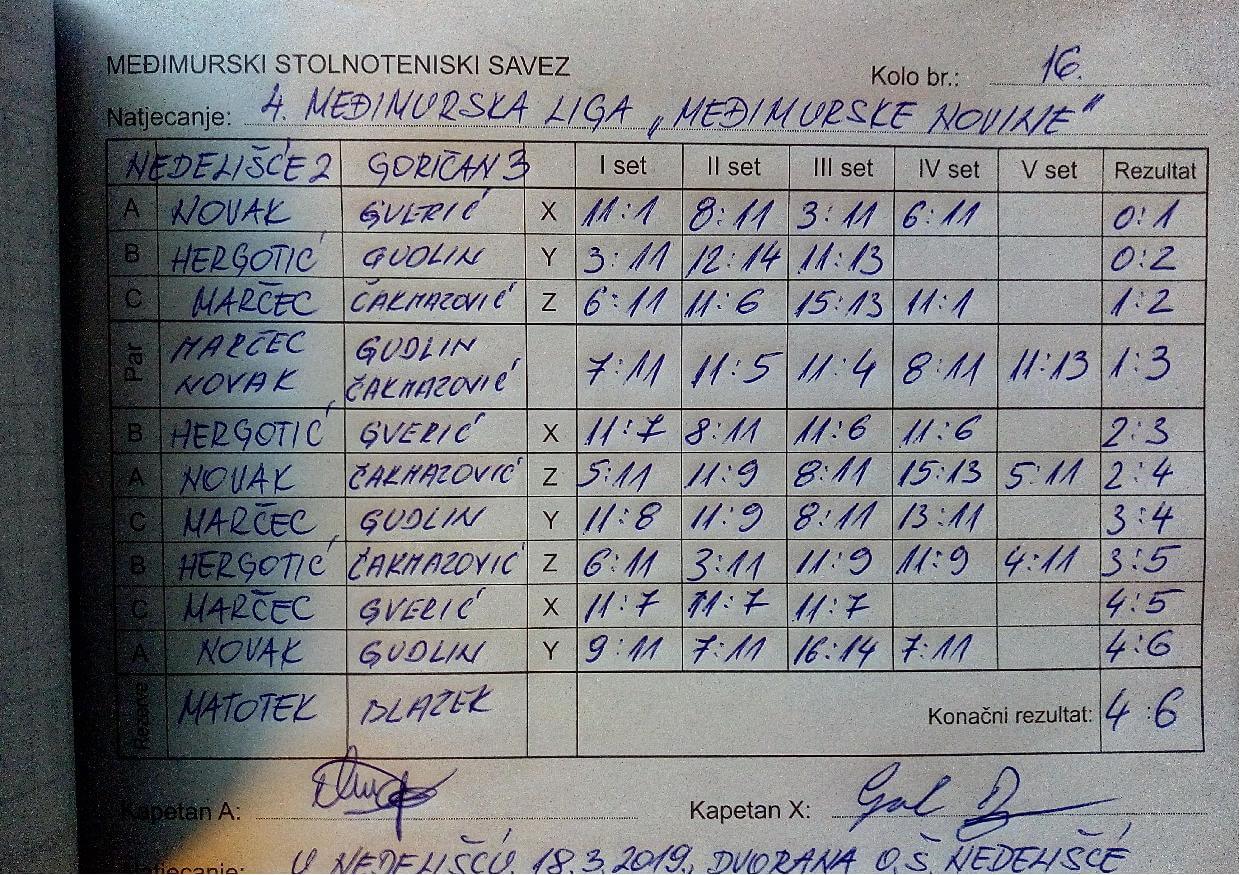 MEĐIMURSKI STOLNOTENISKI SAVEZ Kolo br.: 16.
Natjecanje: 4. MEĐIMURSKA LIGA „MEĐIMURSKE NOVINE"
NEDELIŠĆE 2 GORIČAN 3 I set II set III set IV set V set Rezultat
A NOVAK GVERIĆ X 11:1 8:11 3:11 6:11 0:1
B HERGOTIĆ GUDLIN Y 3:11 12:14 11:13 0:2
C MARČEC ČAKMAZOVIĆ Z 6:11 11:6 15:13 11:1 1:2
Par MARČEC NOVAK GUDLIN ČAKMAZOVIĆ 7:11 11:5 11:4 8:11 11:13 1:3
B HERGOTIĆ GVERIĆ X 11:7 8:11 11:6 11:6 2:3
A NOVAK ČAKMAZOVIĆ Z 5:11 11:9 8:11 15:13 5:11 2:4
C MARČEC GUDLIN Y 11:8 11:9 8:11 13:11 3:4
B HERGOTIĆ ČAKMAZOVIĆ Z 6:11 3:11 11:9 11:9 4:11 3:5
C MARČEC GVERIĆ X 11:7 11:7 11:7 4:5
A NOVAK GUDLIN Y 9:11 7:11 16:14 7:11 4:6
Rezerve MATOTEK BLAŽEK Konačni rezultat: 4:6
Kapetan A: Kapetan X:
U NEDELIŠĆU, 18.3.2019., DVORANA O.Š. NEDELIŠĆE